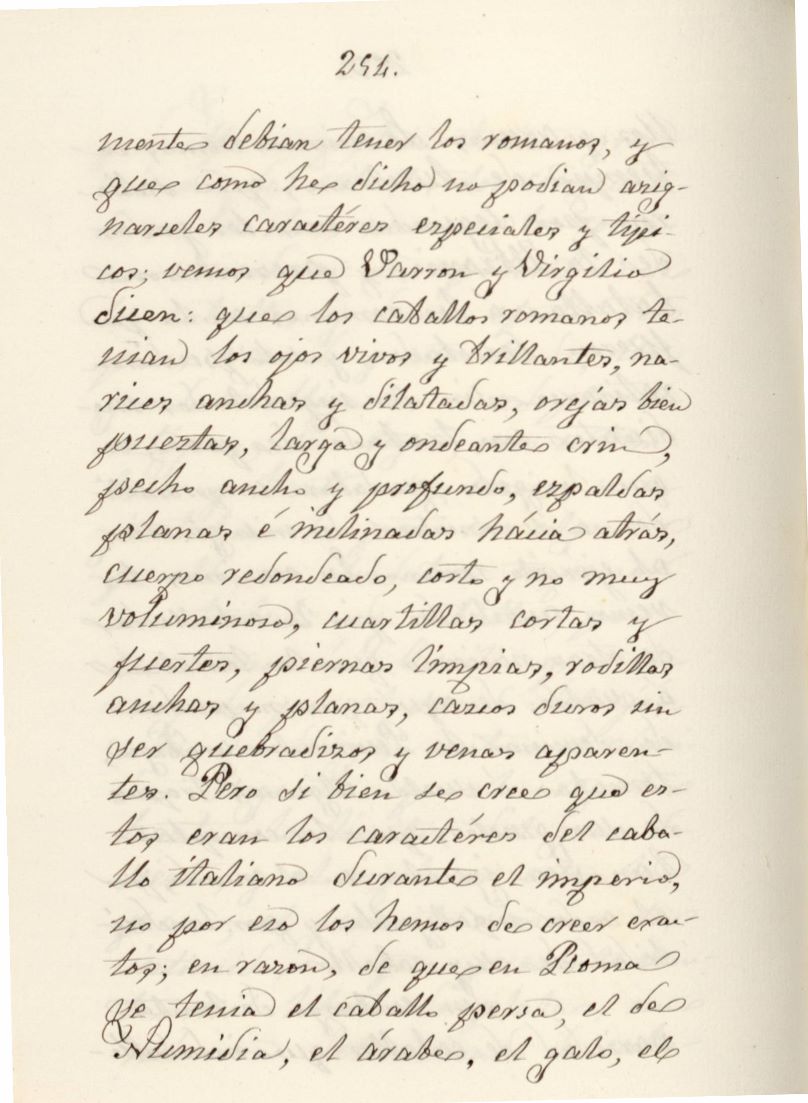 254.
mente debian tener los romanos, y
que como he dicho no podian asig-
narseles caractéres especiales y típi-
cos; vemos que Varron y Virgilio
dicen: que los caballos romanos te-
nian los ojos vivos y brillantes, na-
rices anchas y dilatadas, orejas bien
puestas, larga y ondeante crin,
pecho ancho y profundo, espaldas
planas é inclinadas hácia atrás,
cuerpo redondeado, corto y no muy
voluminoso, cuartillas cortas y
fuertes, piernas limpias, rodillas
anchas y planas, cascos duros sin
ser quebradizos y venas aparen-
tes. Pero si bien se cree que es-
tos eran los caractéres del caba-
llo italiano durante el imperio,
no por eso los hemos de creer exac-
tos; en razon, de que en Roma
se tenia el caballo persa, el de
Numidia, el árabe, el galo, el